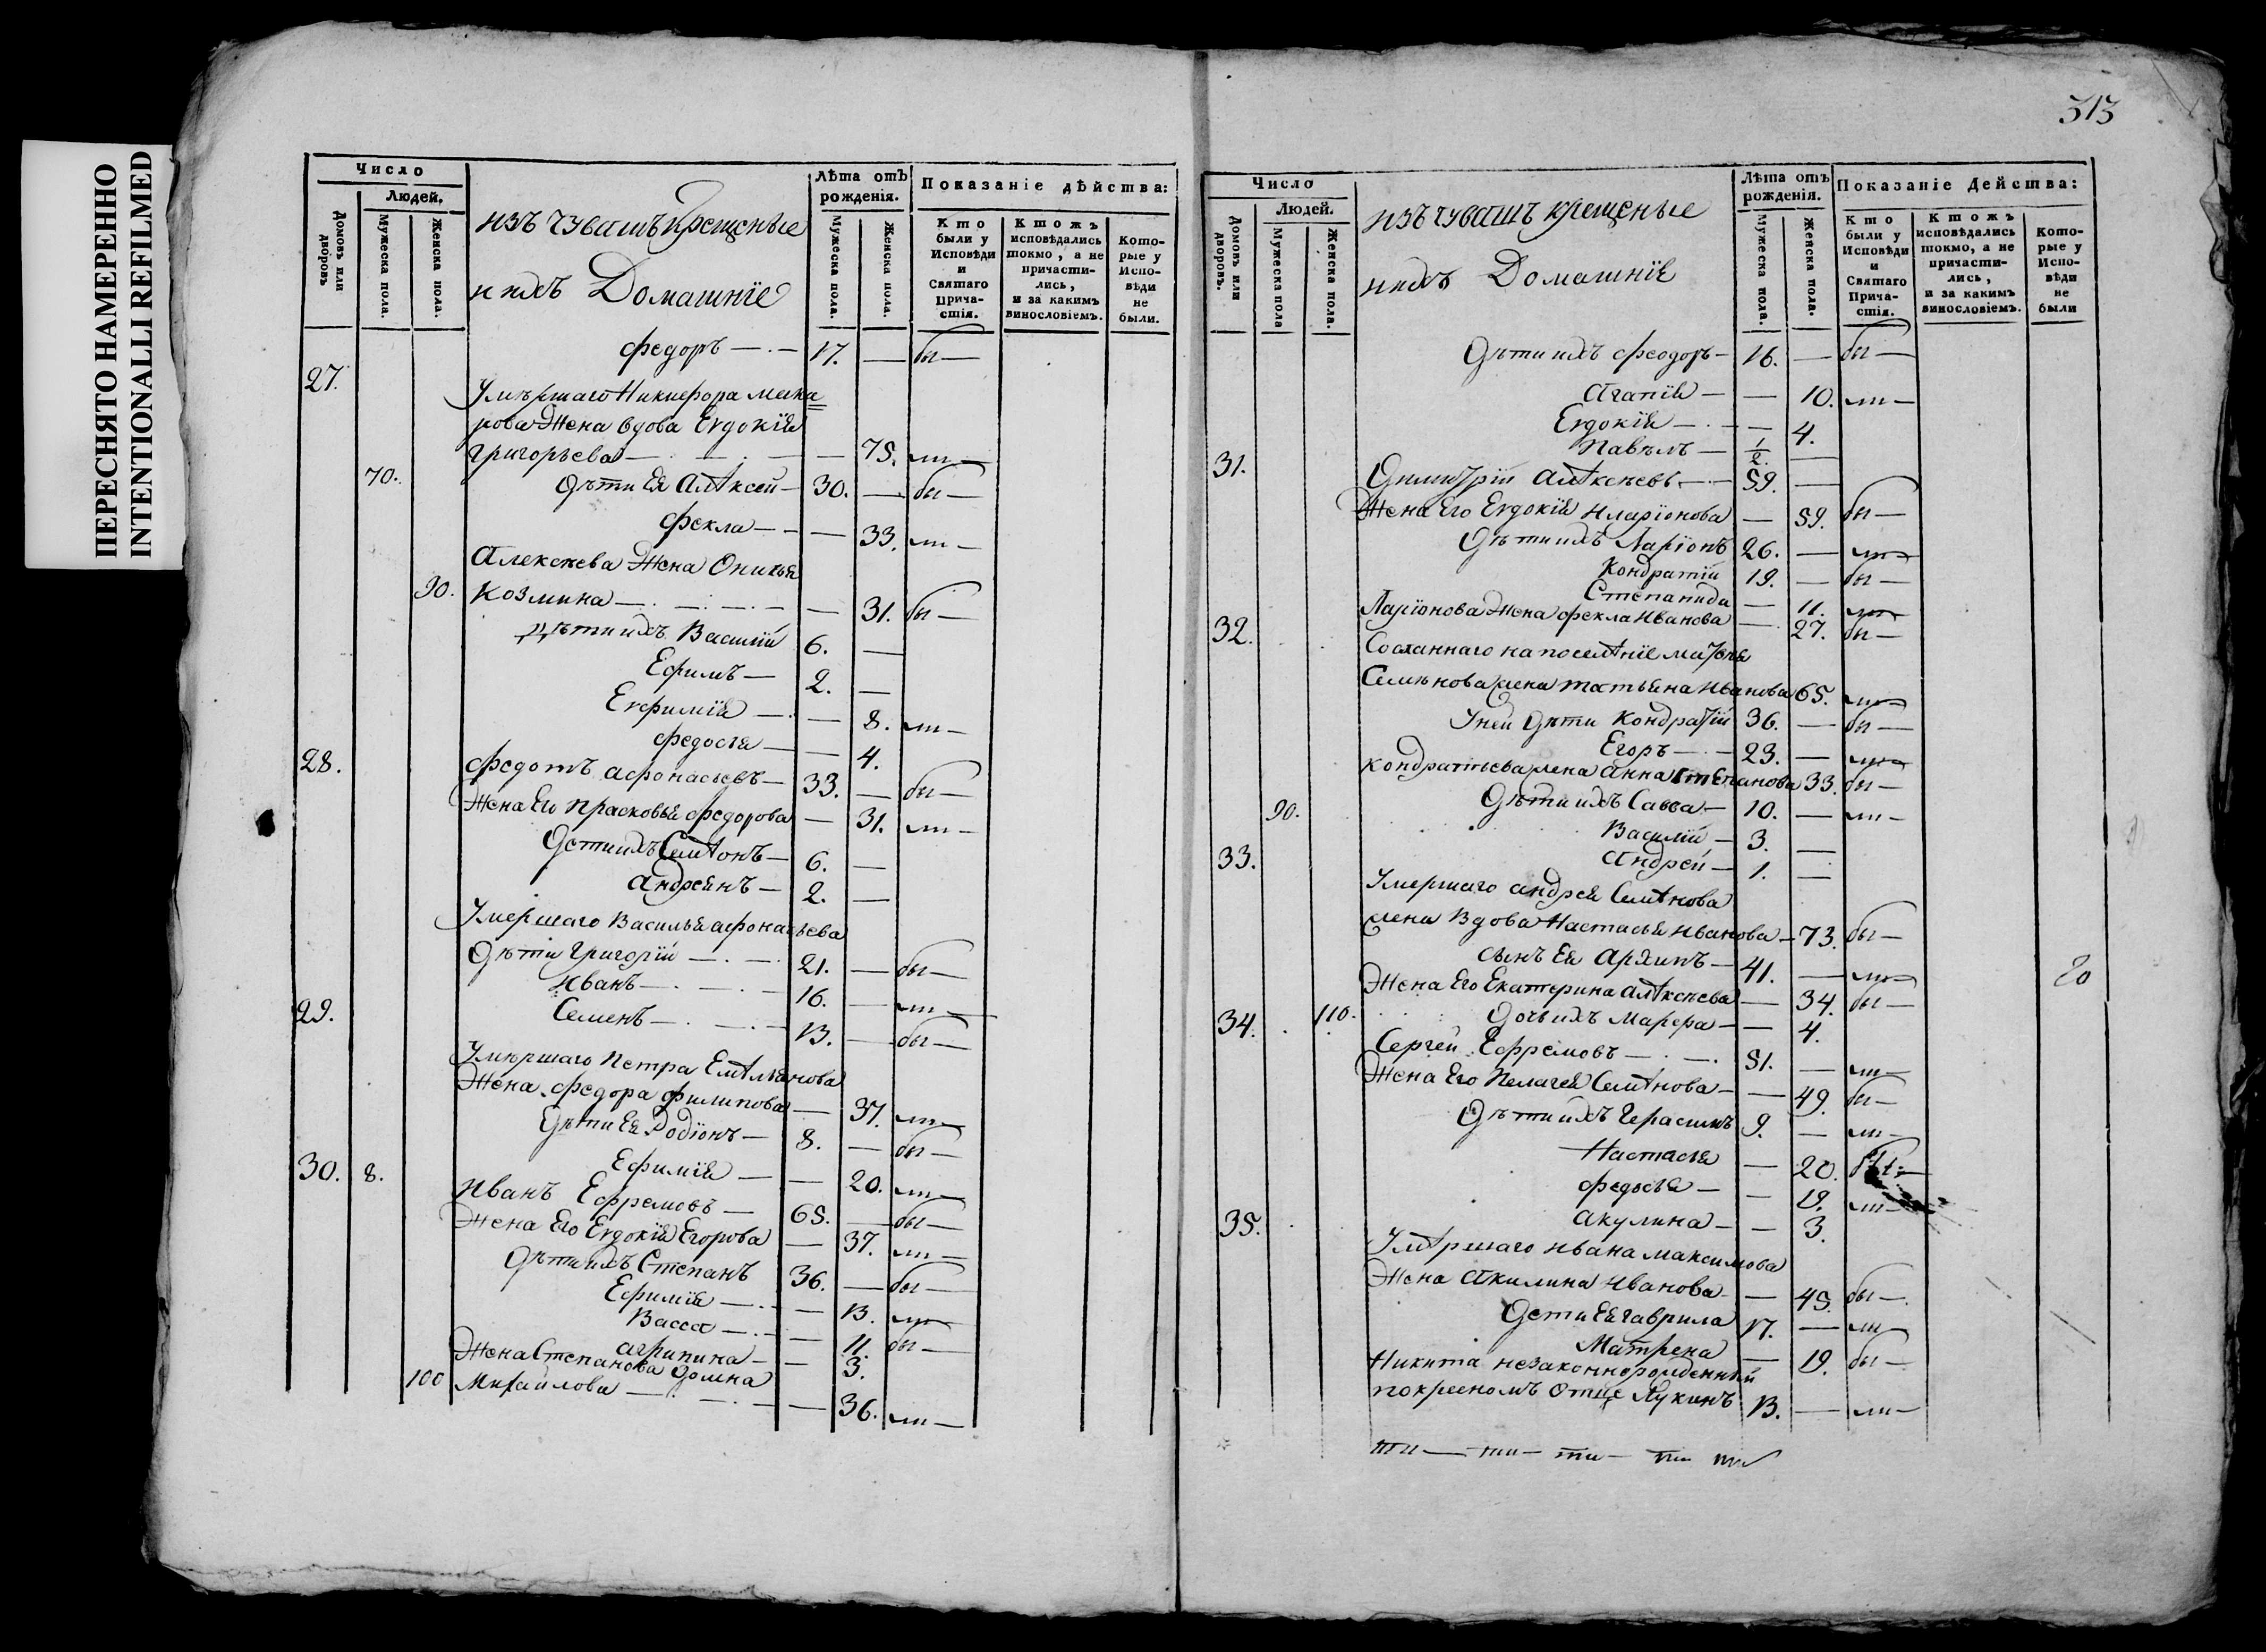 ПЕРЕСНЯТО НАМЕРЕННО
INTENTIONALLI REFILMED
Число
Людей.
Домовъ или дворовъ
Мужеска пола.
Женска пола.
изъ чувашъ крещеные
и ихъ Домашніе
Лѣта отъ рожденія.
Мужеска пола.
Женска пола.
Показаніе дѣйства:
Кто были у Исповѣди и Святаго Прича-стія.
Ктожъ исповѣдались токмо, а не причасти-лись, и за какимъ винословіемъ.
Кото-рые у Испо-вѣди не были.
Федоръ — 17. — бы —
27. Умѣршаго Никифора Мака
рова Жена вдова Евдокія
Григорьева — — 75. ли —
70. Дѣти Ея Алѣксей — 30. — бы —
Фекла — — 33. ли —
Алексѣева Жена
90. Козмина — — 31. бы —
Дѣти ихъ Василій 6. —
Ефимъ — 2. —
Евфимія — — 8. ли —
Федосья — — 4.
28. Федотъ Афонасьевъ — 33. — бы —
Жена Его Прасковья Федорова — 31. ли —
Дети ихъ Семѣонъ — 6. —
Андреянъ — 2. —
Умершаго Василья Афонасьева
Дѣти Григорій — 21. — бы —
Иванъ — 16. — ли —
29. Семенъ — 13. — бы —
Умершаго Петра Емѣльянова
Жена Федора Филипова — 37. ли —
Дѣти Ея Родіонъ — 8. — бы —
Ефимія — — 20. ли —
30. 8. Иванъ Ефремовъ — 65. — бы —
Жена Его Евдокія Егорова — 37. ли —
Дѣти ихъ Степанъ 36. — бы —
Ефимія — — 13. ли —
Васса — — 11. бы —
Агрипина — — 3.
Жена Степанова
100 Михайлова — — 36. ли —
313
Число
Людей.
Домовъ или дворовъ.
Мужеска пола
Женска пола.
изъ чувашъ крещеные
и ихъ Домашніе
Лѣта отъ рожденія.
Мужеска пола.
Женска пола.
Показаніе Действа:
Кто были у Исповѣди и Святаго Прича-стія.
Ктожъ исповѣдались токмо, а не причасти-лись, и за какимъ винословіемъ.
Кото-рые у Испо-вѣди не были
Дѣти ихъ Феодоръ — 16. — бы —
Агапія — — 10. ли —
Евдокія — — 4.
Павѣлъ — 1/2. —
31. Димитрій Алѣксѣевъ — 59. —
Жена Его Евдокія Иларіонова — 59. бы —
Дѣти ихъ Ларіонъ 26. — ли —
Кондратій 19. — бы —
Степанида — 11. ли —
Ларіонова Жена Фекла Иванова — 27. бы —
32. Сосланнаго на поселѣніе Матвѣя
Семѣнова жена Татьяна Иванова 65. ли —
У ней Дѣти Кондратій 36. — бы —
Егоръ — 23. — ли —
Кондратьева жена Анна Степанова 33. бы —
90. Дѣти ихъ Савва — 10. — ли —
Василій — 3. —
33. Андрей — 1. —
Умершаго Андрея Семѣнова
жена Вдова Настасья Иванова — 73. бы —
сынъ Ея Архипъ — 41. — ли —
Жена Его Екатерина Алѣксѣева — 34. бы —
110. Дочь ихъ Марфа — — 4.
34. Сергей Ефремовъ — 51. — ли —
Жена Его Пелагея Семѣнова — — 49. бы —
Дѣти ихъ Герасимъ 9. — ли —
Настасья — 20. бы —
Федосья — — 19. ли —
Акулина — — 3.
35. Умѣршаго Ивана Максимова
Жена Акилина Иванова — 45. бы —
Дети Ея Гаврила 17. — ли —
Матрена — 19. бы —
Никита незаконнорожденный
по кресномъ отце Лукинъ 13. — ли —